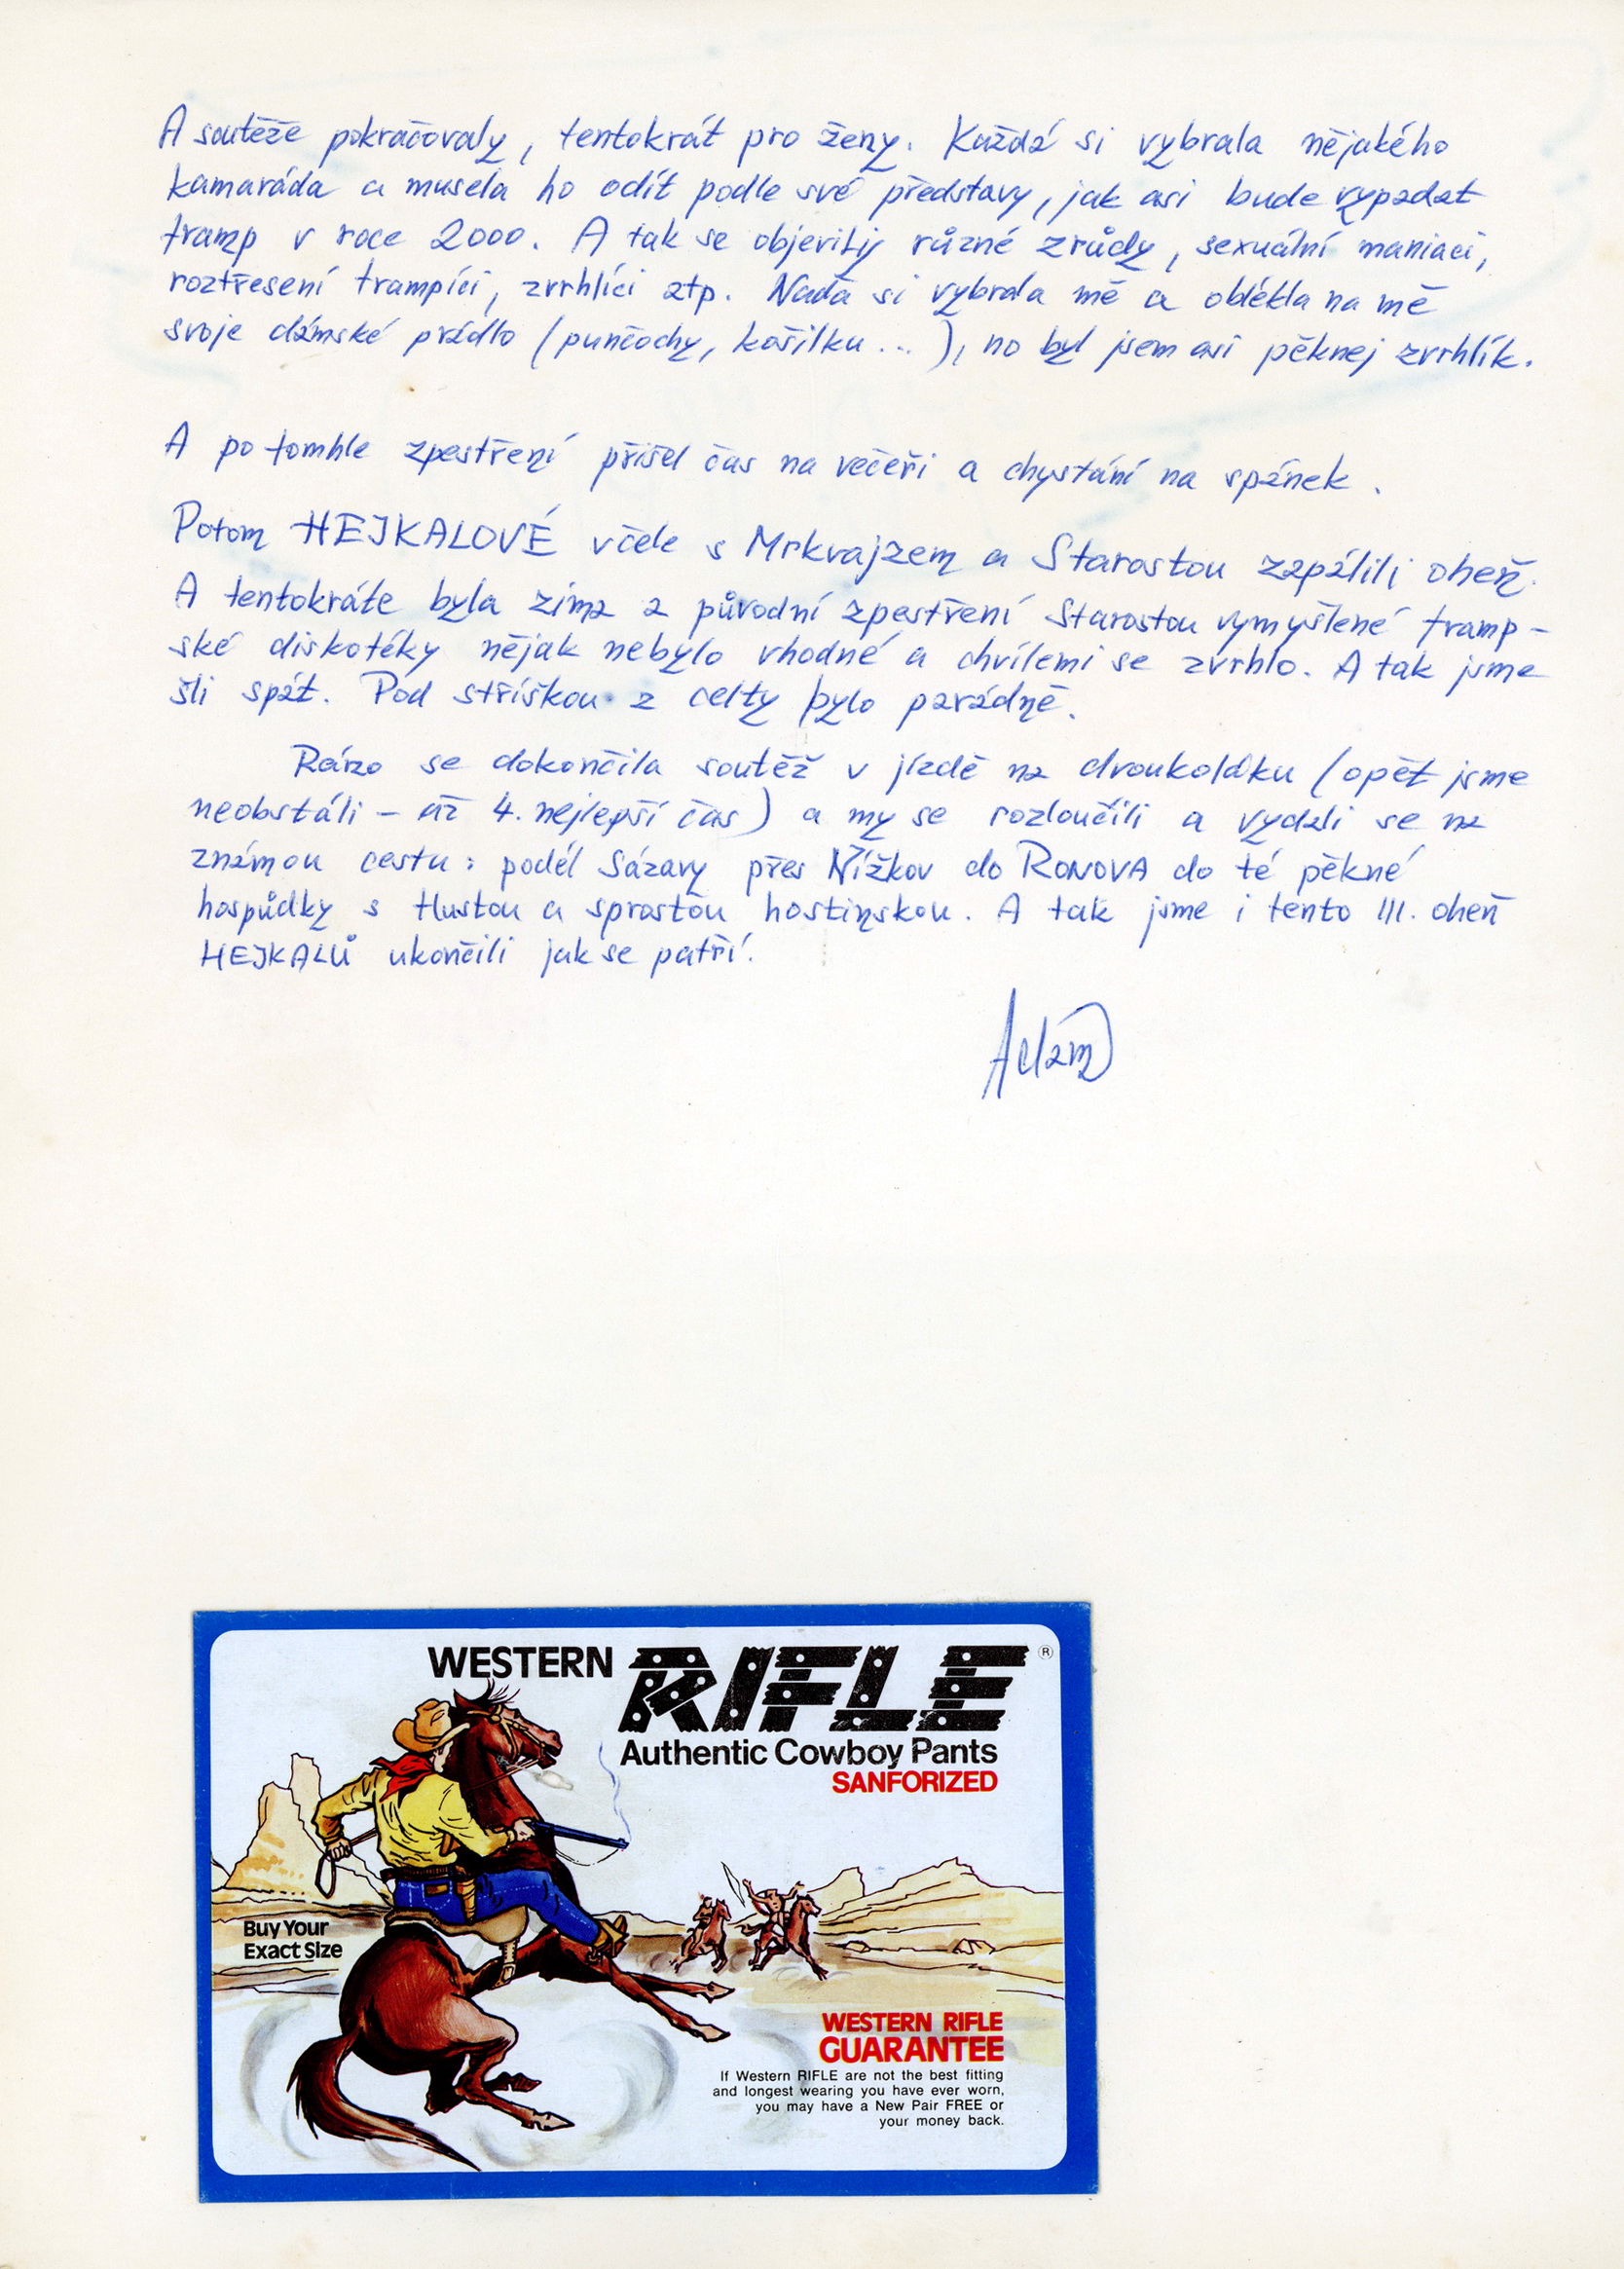 A soutěže pokračovaly, tentokrát pro ženy. Každá si vybrala nějakého
kamaráda a musela ho odít podle své představy, jak asi bude vypadat
tramp v roce 2000. A tak se objevily různé zrůdy, sexuální maniaci,
roztřesení trampíci, zvrhlíci atp. Naďa si vybrala mě a oblékla na mě
svoje dámské prádlo (punčochy, košilku...), no byl jsem asi pěknej zvrhlík.
A po tomhle zpestření přišel čas na večeři a chystání na spánek.
Potom HEJKALOVÉ včele s Mrkvajzem a Starostou zapálili oheň.
A tentokráte byla zima a původní zpestření Starostou vymyšlené tramp-
ské diskotéky nějak nebylo vhodné a chvílemi se zvrhlo. A tak jsme
šli spát. Pod stříškou z celty bylo parádně.
Ráno se dokončila soutěž v jízdě na dvoukoláku (opět jsme
neobstáli - až 4. nejlepší čas) a my se rozloučili a vydali se na
známou cestu: podél Sázavy přes Nížkov do RONOVA do té pěkné
hospůdky s tlustou a sprostou hostinskou. A tak jsme i tento III. oheň
HEJKALŮ ukončili jak se patří.
Adam
WESTERN RIFLE ®
Authentic Cowboy Pants
SANFORIZED
Buy Your
Exact Size
WESTERN RIFLE
GUARANTEE
If Western RIFLE are not the best fitting
and longest wearing you have ever worn,
you may have a New Pair FREE or
your money back.